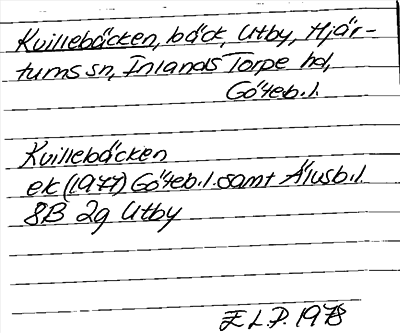 Kvillebäcken, bäck, Utby, Hjär-
tums sn, Inlands Torpe hd,
Göteb.l.
Kvillebäcken
ek (1977) Göteb.l. samt Älvsb.l.
8B 2g Utby
E L.P. 1978